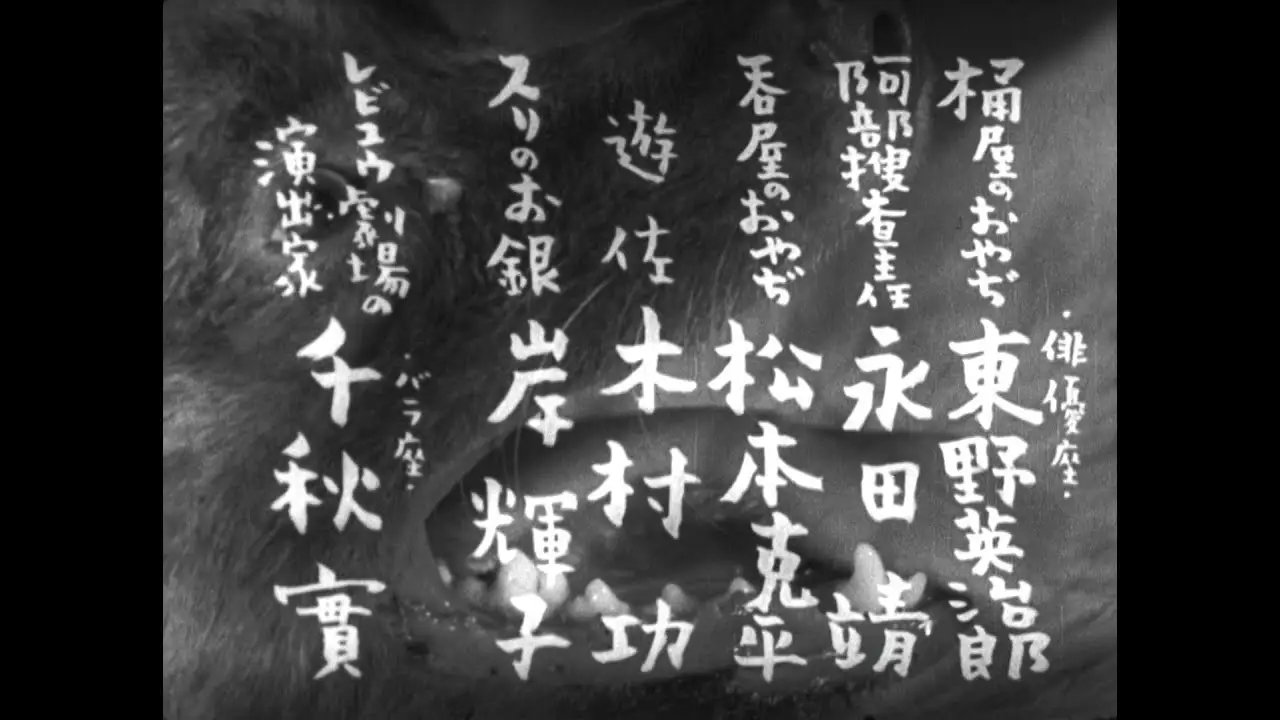 ・俳優座・
桶屋のおやぢ 東野英治郎
阿部捜査主任 永田靖
呑屋のおやぢ 松本克平
遊佐 木村功
スリのお銀 岸輝子
・バラ座・
レビュウ劇場の
演出家 千秋實